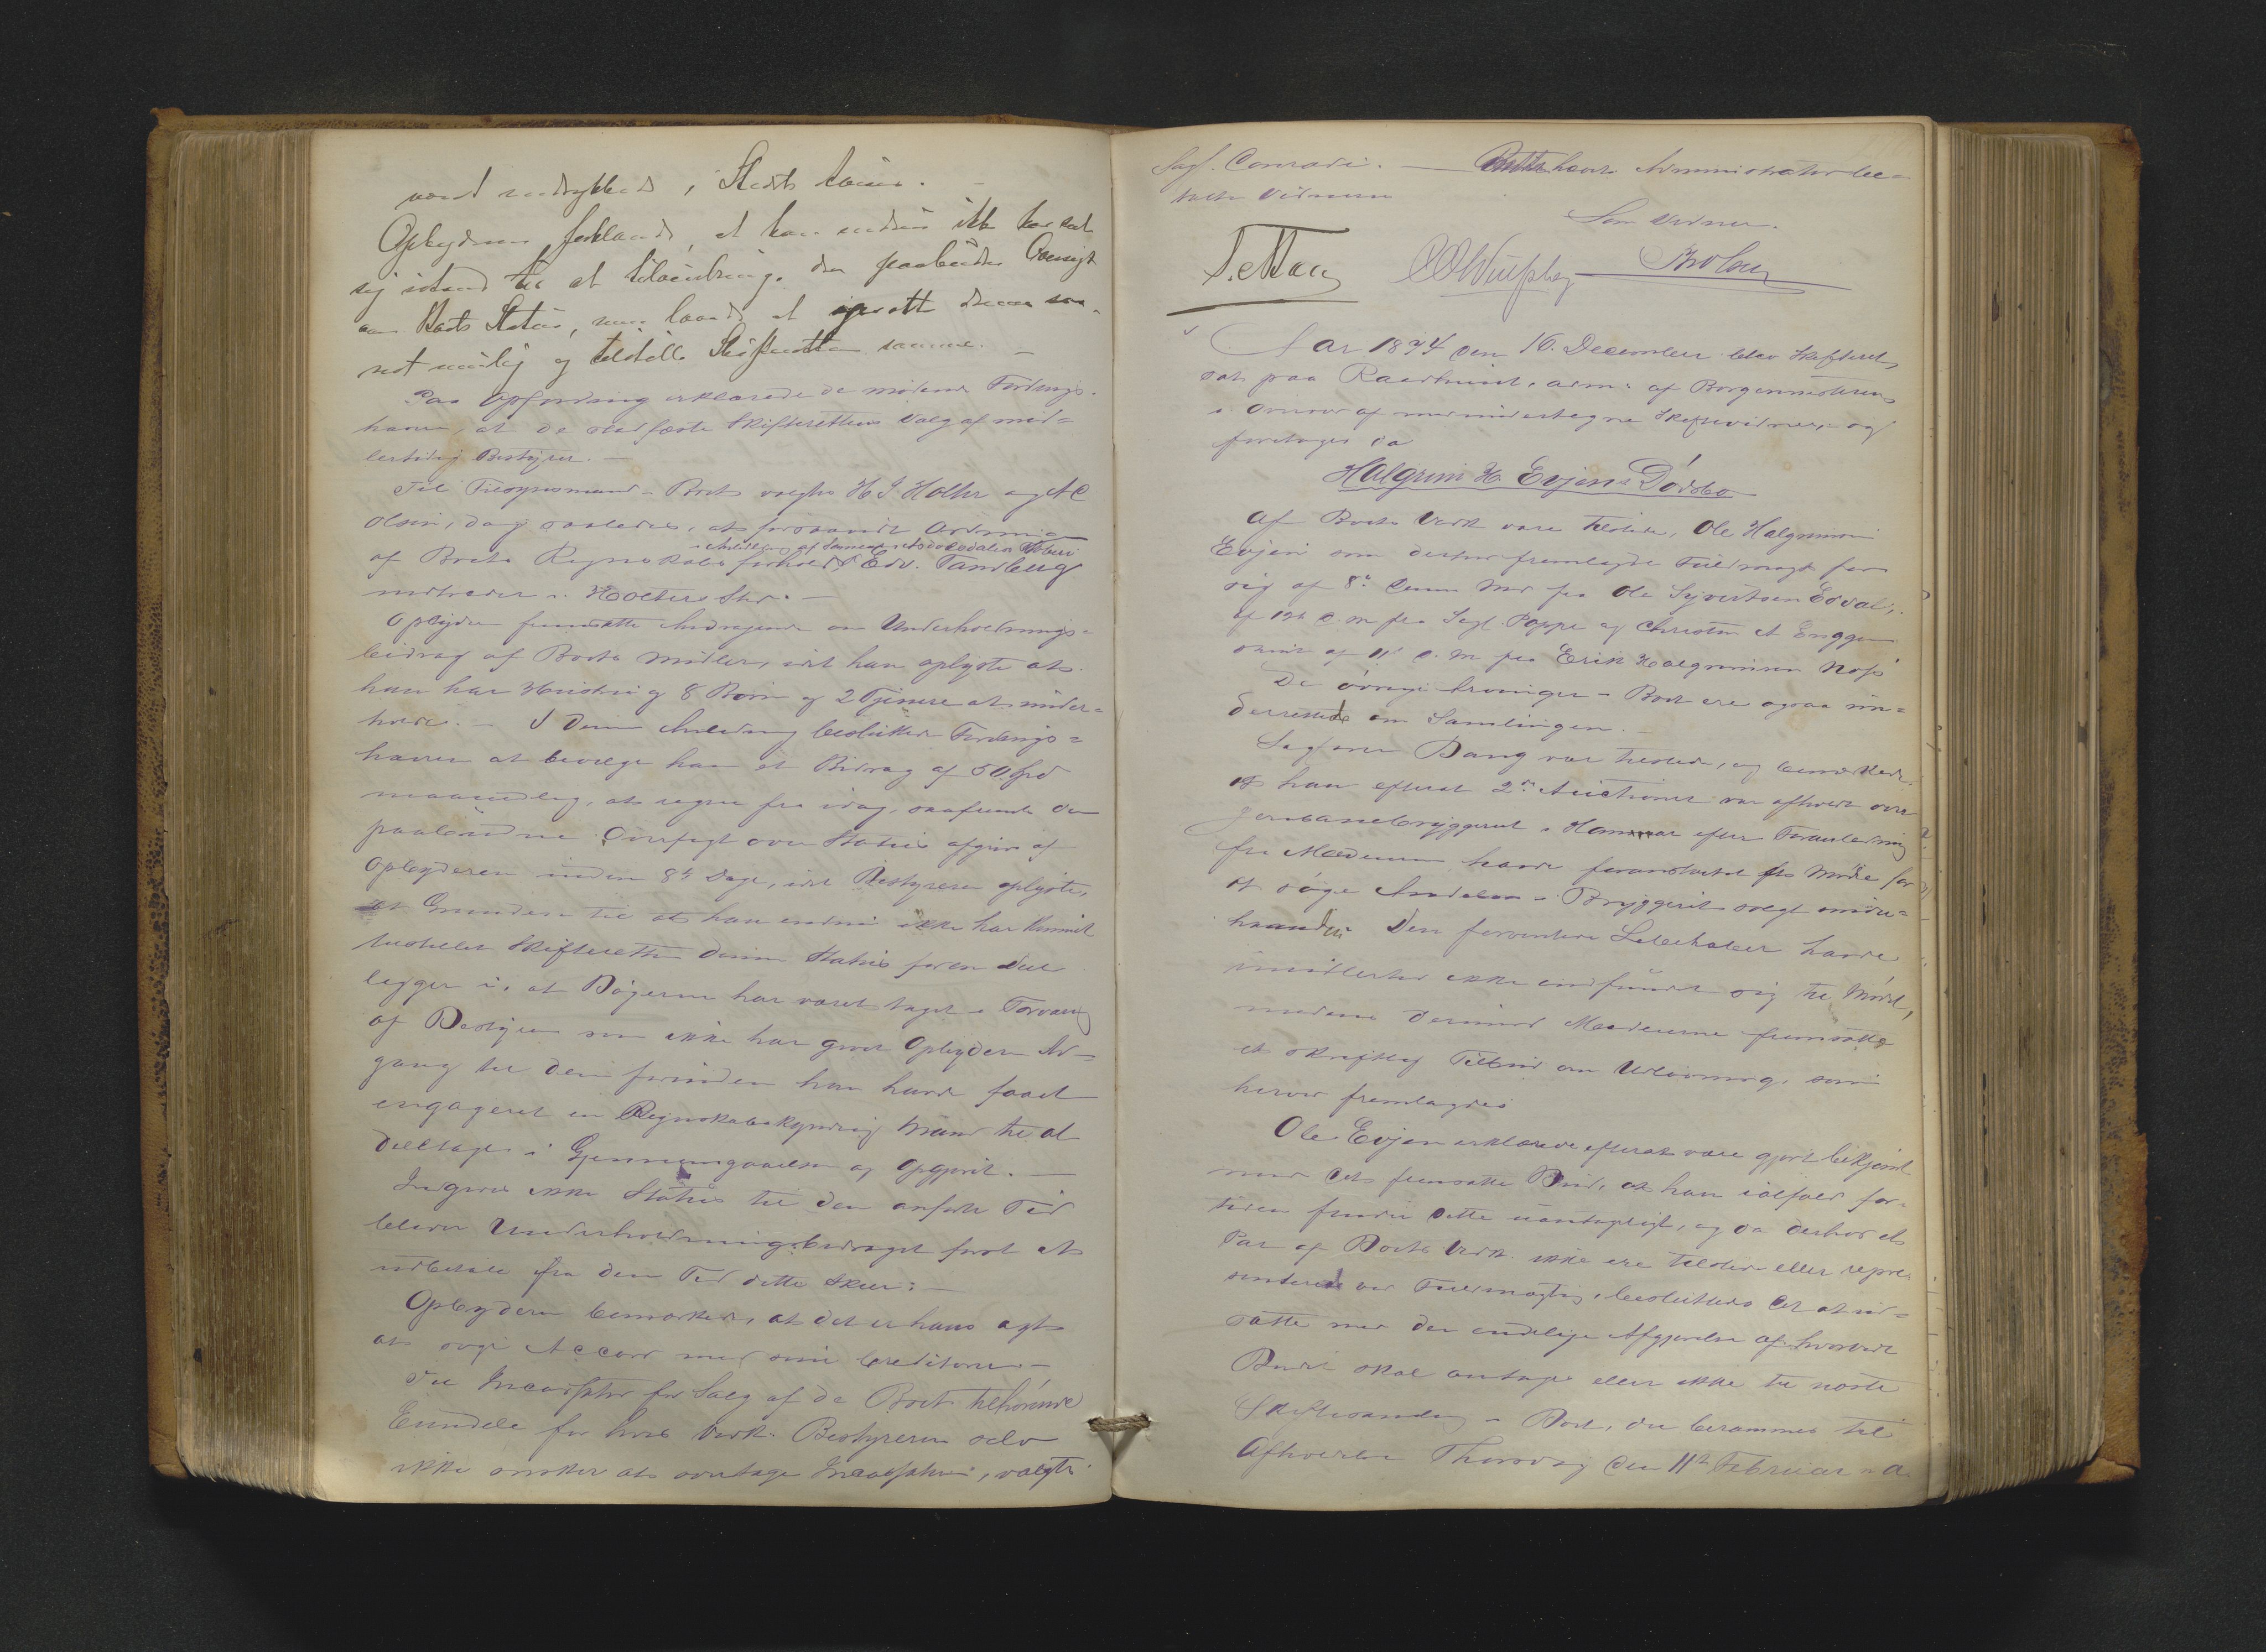 været indrykket i Stedets Aviser. —
Opbyderen forklarede, at han endnu ikke har seet
sig istand til at tilveiebringe den paabudte Oversigt
over Boets Status, men lovede at oprette denne sna-
rest muelig og tilstille Skifteretten samme. —
Paa Opfordring erklærede de mødende Fordrings-
havere, at de stadfæste Skifterettens Valg af mid-
lertidig Bestyrer. —
Til Tilsynsmænd i Boet valgtes H J. Holter og A C
Olsen, dog saaledes, at forsaavidt Ordning
af Boets Regnskabs forhold Edv. Tandberg
indtræder i Holters Sted. —
Opbyderen fremsatte Andragende om Underholdnings-
bidrag af Boets Midler, idet han oplyste at
han har Hustru og 8 Børn og 2 Tjenere at under-
holde. — I den Anledning besluttede Fordrings-
haverne at bevilge ham et Bidrag af 50 Spd
maanedlig, at regne fra idag, saafremt den
paabudne Oversigt over Status afgives af
Opbyderen inden 8te Dage, idet Bestyreren oplyste,
at Grunden til at han endnu ikke har kunnet
tilstillet Skifteretten denne Status for en Deel
ligger i, at Bøgerne har været taget i Forvaring
af Bestyreren som ikke har givet Opbyderen Ad-
gang til dem forinden han havde faaet
engageret en Regnskabskyndig Mand til at
deeltage i Gjennemgaaelsen og Opgjøret. —
Indgives ikke Status til den anførte Tid
bliver Underholdningsbidraget først at
udbetale fra den Tid dette skeer: —
Opbyderen bemærkede, at det er hans agt
at søge Accord med sine Creditorer. —
Til Incassator for Salg af de Boet tilhørende
Eiendele for hvis Vedk. Bestyreren selv
ikke ønsker at overtage Incassationen, valgtes
Sagf. Conradi. — Retten hævet. Administrator be-
talte Vidnerne
Som Vidner.
Aar 1874 den 16. December blev Skifteret
sat paa Raadhuset, adm: af Borgermesteren
i Overvær af medundertegnede Skiftevidner, og
foretoges da
Halgrim H Evjens Dødsbo
Af Boets Vedk vare tilstede, Ole Halgrimsen
Evjen som derhos fremlagde Fuldmagt for
sig af 8de denne Md fra Ole Syvertsen Edval,
af 12te d. M fra Sagf. Poppe og Christen A Enggen
samt af 11te d. M fra Erik Halgrimsen Nass
De øvrige Arvinger i Boet ere ogsaa un-
derrettede om Samlingen. —
Sagfører Bang var tilstede, og bemærkede
at han efterat 2den Auction var afholdt over
Jernbanebryggeriet i Hammar efter Foranledning
fra Mæderne havde foranstaltet et Møde for
at søge Andelen i Bryggeriet solgt under-
haanden. Den forventede Liebhaber havde
imidlertid ikke indfundet sig til Mødet,
medens derimod Mæderne fremsatte
et skriftlig Tilbud om Udløsning, som
herved fremlagdes
Ole Evjen erklærede efterat være gjort bekjendt
med det fremsatte Bud, at han ialfald for-
tiden finder dette uantageligt, og da derhos et
Par af Boets Vedk. ikke ere tilstede eller repræ-
senterede ved Fuldmagt, besluttedes det at ud-
sætte med den endelige Afgjørelse af hvorvidt
Budet skal antages eller ikke til næste
Skiftesamling i Boet, der berammes til
Afholdelse Thorsdag den 11te Februar n. A.